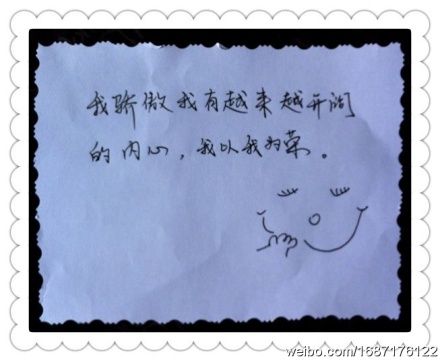 我骄傲我有越来越开阔
的内心，我以我为荣。
weibo.com/1687176122